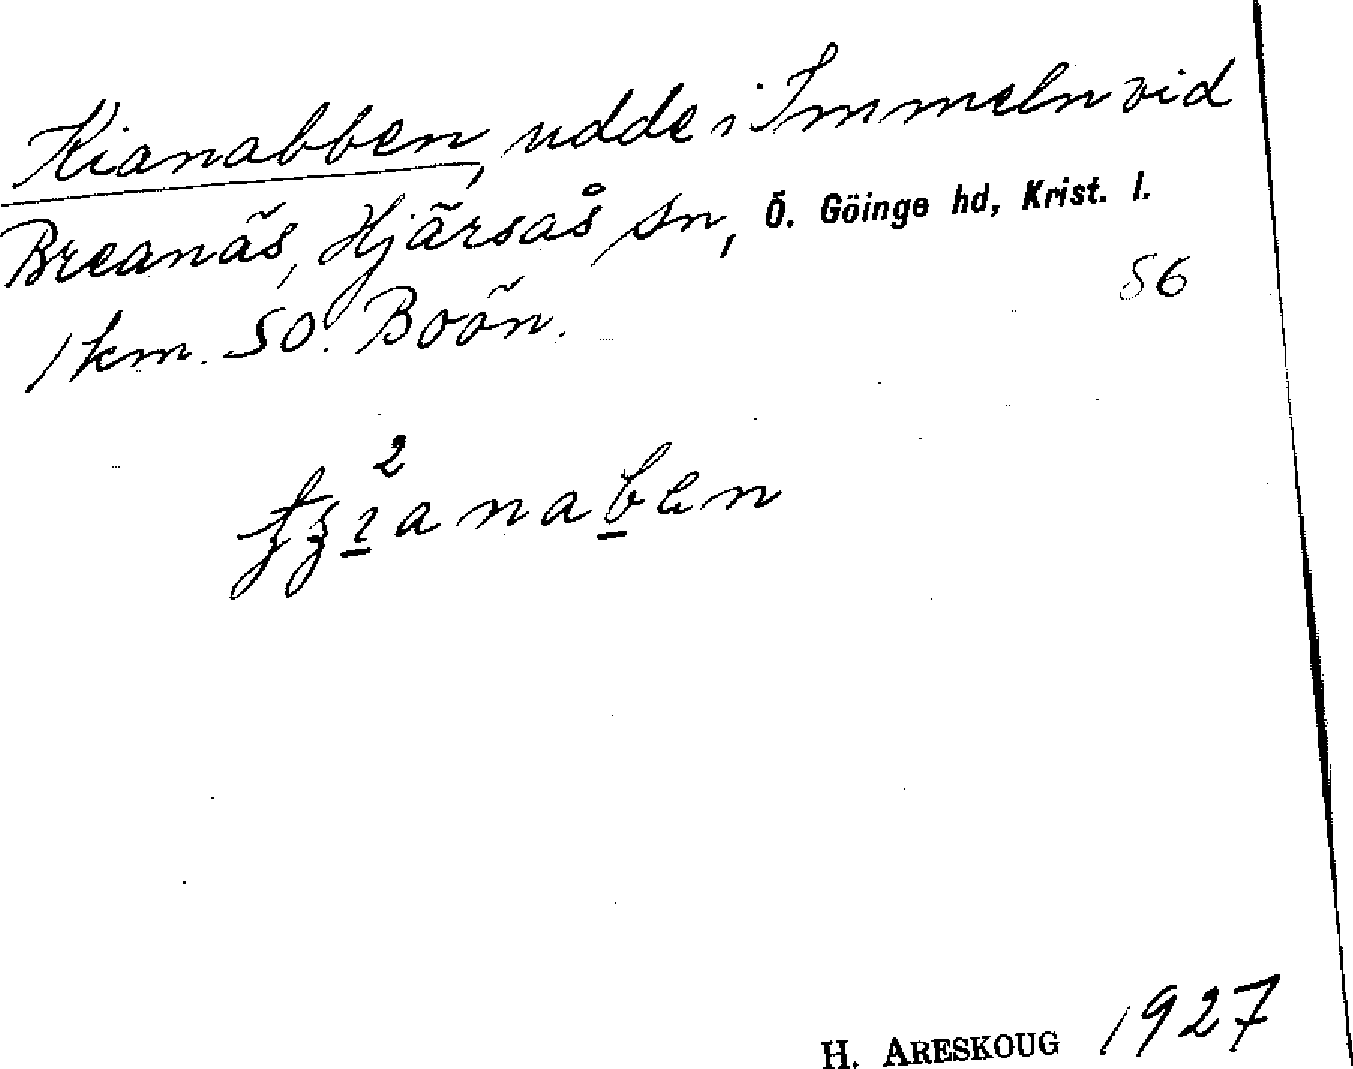 Kianabben, udde i Immeln vid
Breanäs, Hjärsås sn, Ö. Göinge hd, Krist. l.
56
1 km. SO. Boön.
2
H. ARESKOUG 1927